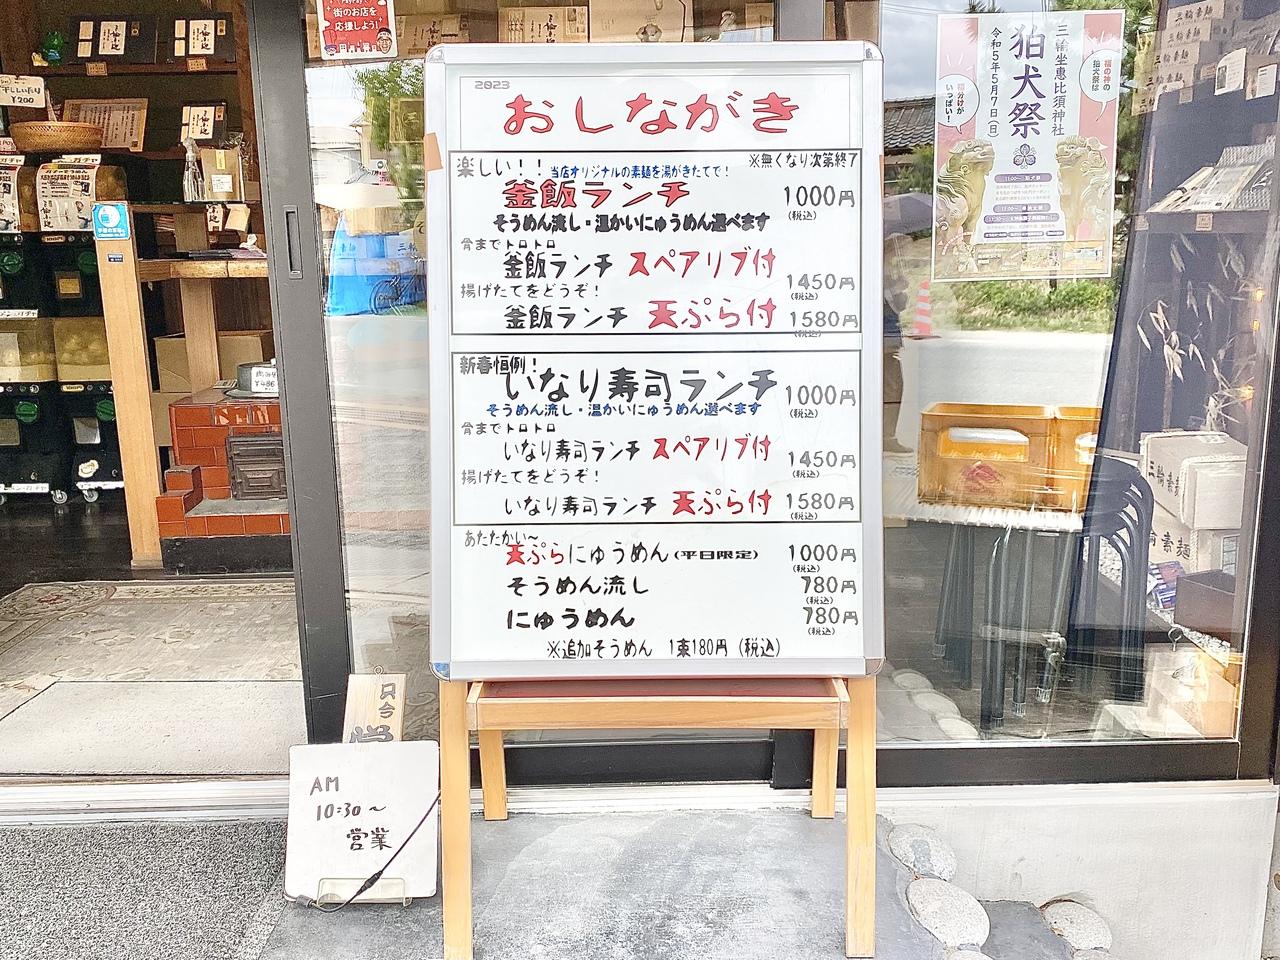 2023
おしながき
楽しい！！
当店オリジナルの素麺を湯がきたてで！
※無くなり次第終了
釜飯ランチ 1000円
(税込)
そうめん流し・温かいにゅうめん選べます
骨までトロトロ
釜飯ランチ スペアリブ付 1450円
(税込)
揚げたてをどうぞ！
釜飯ランチ 天ぷら付 1580円
(税込)
新春恒例！
いなり寿司ランチ 1000円
(税込)
そうめん流し・温かいにゅうめん選べます
骨までトロトロ
いなり寿司ランチ スペアリブ付 1450円
(税込)
揚げたてをどうぞ！
いなり寿司ランチ 天ぷら付 1580円
(税込)
あたたかい〜
天ぷらにゅうめん(平日限定) 1000円
(税込)
そうめん流し 780円
(税込)
にゅうめん 780円
(税込)
※追加そうめん 1束180円 (税込)
AM
10:30〜
営業
只今
街のお店を
応援しよう！
¥200
¥486
三輪坐恵比須神社
狛犬祭
令和5年5月7日(日)
福の神の
狛犬祭は
福分けが
いっぱい！
三輪素麺